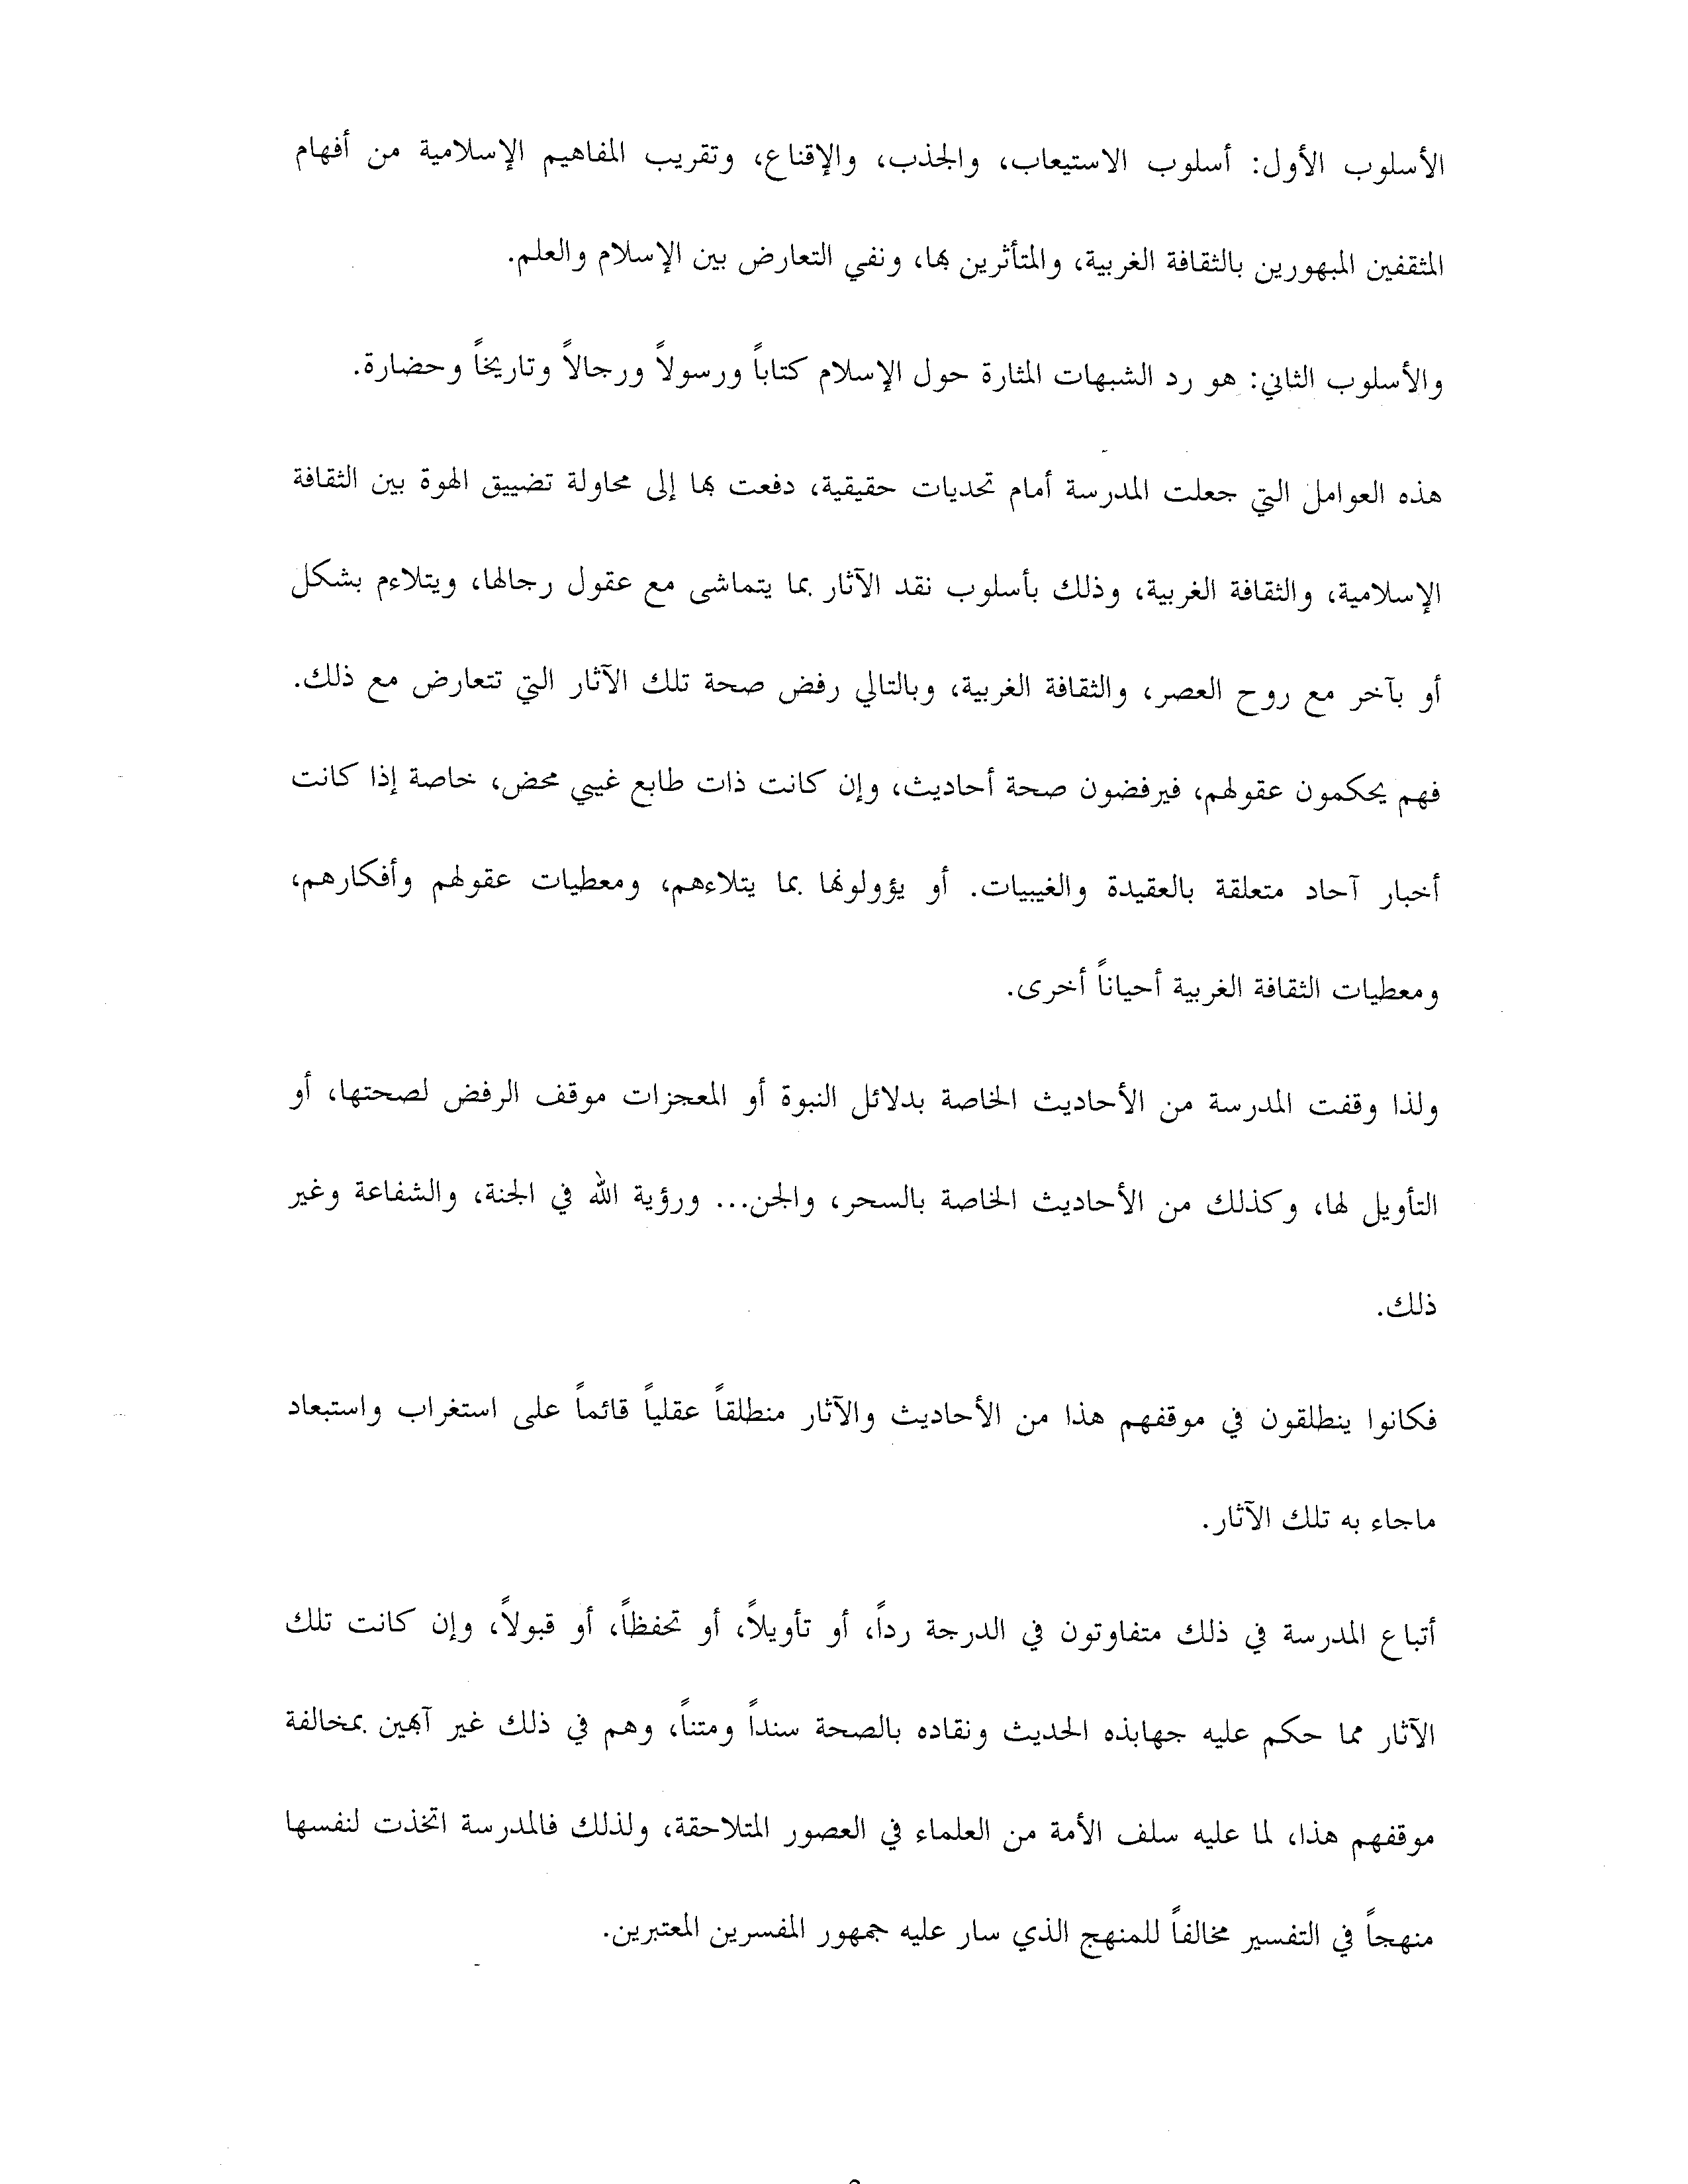 الأسلوب الأول: أسلوب الاستيعاب، والجذب، والإقناع، وتقريب المفاهيم الإسلامية من أفهام
المثقفين المبهورين بالثقافة الغربية، والمتأثرين بها، ونفي التعارض بين الإسلام والعلم.
والأسلوب الثاني: هو رد الشبهات المثارة حول الإسلام كتاباً ورسولاً ورجالاً وتاريخاً وحضارة.
هذه العوامل التي جعلت المدرسة أمام تحديات حقيقية، دفعت بها إلى محاولة تضييق الهوة بين الثقافة
الإسلامية، والثقافة الغربية، وذلك بأسلوب نقد الآثار بما يتماشى مع عقول رجالها، ويتلاءم بشكل
أو بآخر مع روح العصر، والثقافة الغربية، وبالتالي رفض صحة تلك الآثار التي تتعارض مع ذلك.
فهم يحكمون عقولهم، فيرفضون صحة أحاديث، وإن كانت ذات طابع غيبي محض، خاصة إذا كانت
أخبار آحاد متعلقة بالعقيدة والغيبيات. أو يؤولونها بما يتلاءهم، ومعطيات عقولهم وأفكارهم،
ومعطيات الثقافة الغربية أحياناً أخرى.
ولذا وقفت المدرسة من الأحاديث الخاصة بدلائل النبوة أو المعجزات موقف الرفض لصحتها، أو
التأويل لها، وكذلك من الأحاديث الخاصة بالسحر، والجن... ورؤية الله في الجنة، والشفاعة وغير
ذلك.
فكانوا ينطلقون في موقفهم هذا من الأحاديث والآثار منطلقاً عقلياً قائماً على استغراب واستبعاد
ماجاء به تلك الآثار.
أتباع المدرسة في ذلك متفاوتون في الدرجة رداً، أو تأويلاً، أو تحفظاً، أو قبولاً، وإن كانت تلك
الآثار مما حكم عليه جهابذه الحديث ونقاده بالصحة سنداً ومتناً، وهم في ذلك غير آبهين بمخالفة
موقفهم هذا، لما عليه سلف الأمة من العلماء في العصور المتلاحقة، ولذلك فالمدرسة اتخذت لنفسها
منهجاً في التفسير مخالفاً للمنهج الذي سار عليه جمهور المفسرين المعتبرين.